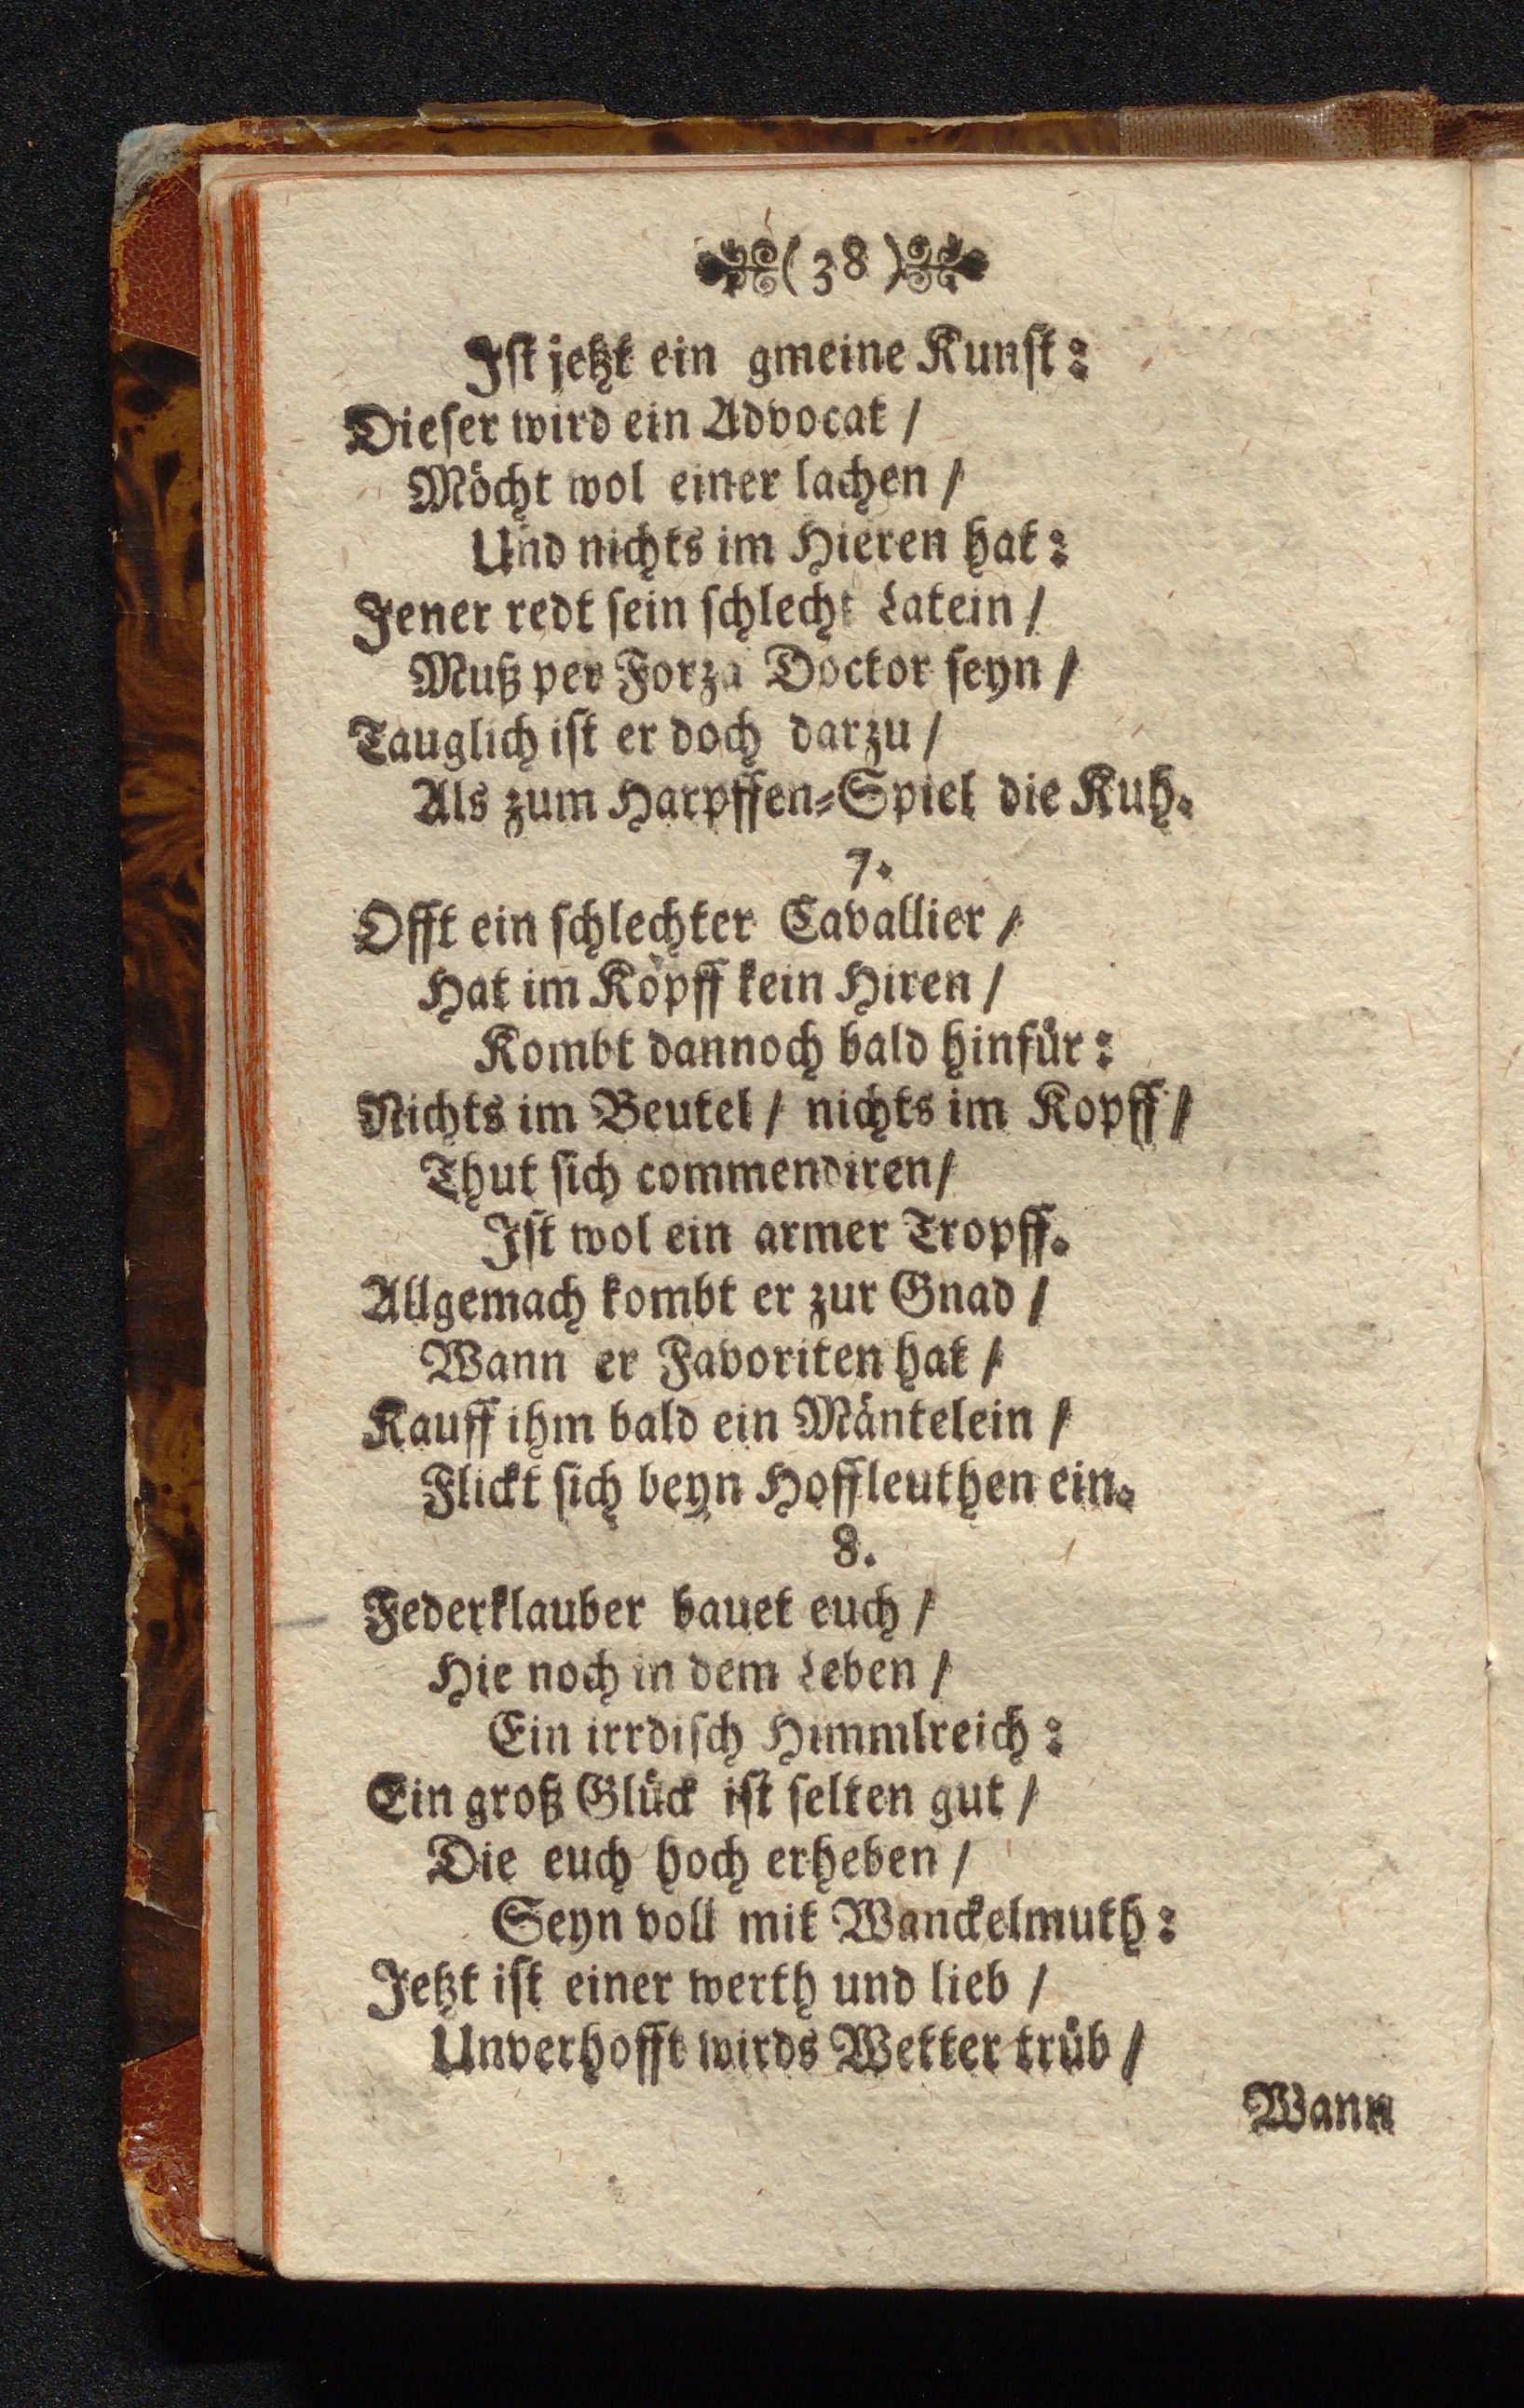 (38)
Ist jetzt ein gmeine Kunst:
Dieser wird ein Advocat /
Möcht wol einer lachen /
Und nichts im Hieren hat:
Jener redt sein schlecht Latein /
Muß per Forza Doctor seyn /
Tauglich ist er doch darzu /
Als zum Harpffen-Spiel die Kuh.
7.
Offt ein schlechter Cavallier /
Hat im Köpff kein Hiren /
Kombt dannoch bald hinfür:
Nichts im Beutel / nichts im Kopff /
Thut sich commendiren /
Ist wol ein armer Tropff.
Allgemach kombt er zur Gnad /
Wann er Favoriten hat /
Kauff ihm bald ein Mäntelein /
Flickt sich beyn Hoffleuthen ein.
8.
Federklauber bauet euch /
Hie noch in dem Leben /
Ein irrdisch Himmlreich:
Ein groß Glück ist selten gut /
Die euch hoch erheben /
Seyn voll mit Wanckelmuth:
Jetzt ist einer werth und lieb /
Unverhofft wirds Wetter trüb /
Wann